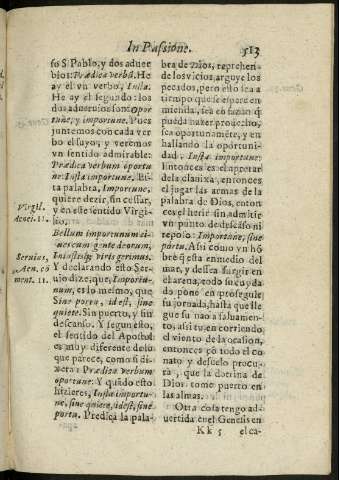 In Passione. 513
so S. Pablo, y dos aduer
bios: Prædica verbũ. He
ay el vn verbo, Insta.
He ay el segundo: los
dos aduerbios son opor
tune, y importune. Pues
juntemos con cada ver
bo el suyo, y veremos
vn sentido admirable:
Prædica verbum oportu-
ne: Insta importune. Es
ta palabra, Importune,
quiere dezir, sin cessar,
y en este sentido Virgi-
lio.
Bellum importunum ci-
uescum gente deorum,
Inuictisq; viris gerimus.
Y declarando esto Ser-
uio dize, que, Importu-
num, es lo mismo, que
Sine portu, id est, sine
quiete. Sin puerto, y sin
descanso. Y segun esto,
el sentido del Apostol
es muy diferente de lo
que parece, como si di
xera: Prædica verbum
oportune: Y quãdo esto
hizieres, Insta importu-
ne, sine quiete, id est, sine
portu. Predica la pala-
Virgil.
Aenei. 11.
Seruius,
Aen. co
ment. 11.
bra de Dios, reprehen-
de los vicios, arguye los
pecados, pero esto sea a
tiempo que se espere en
mienda, sea en sazon q̃
pueda hazer prouecho,
sea oportunamẽte, y en
hallando la oportuni-
dad: Insta importune:
Entonces es el apretar
de la clauixa, entonces
el jugar las armas de la
palabra de Dios, enton
ces el herir sin admitir
vn punto de descanso ni
reposo: Importune, sine
portu. Asi como vn hõ
bre q̃ esta en medio del
mar, y dessea surgir en
el arena, todo su cuyda
do pone en proseguir
su jornada, hasta que lle
gue su nao a saluamen-
to, assi tu en corriendo
el viento de la ocasion,
entonces cõ todo el co
nato y desuelo procu-
ra, que la dotrina de
Dios tome puerto en
las almas.
Otra cosa tengo ad-
uertida en el Genesis en
Kk 5 el ca-